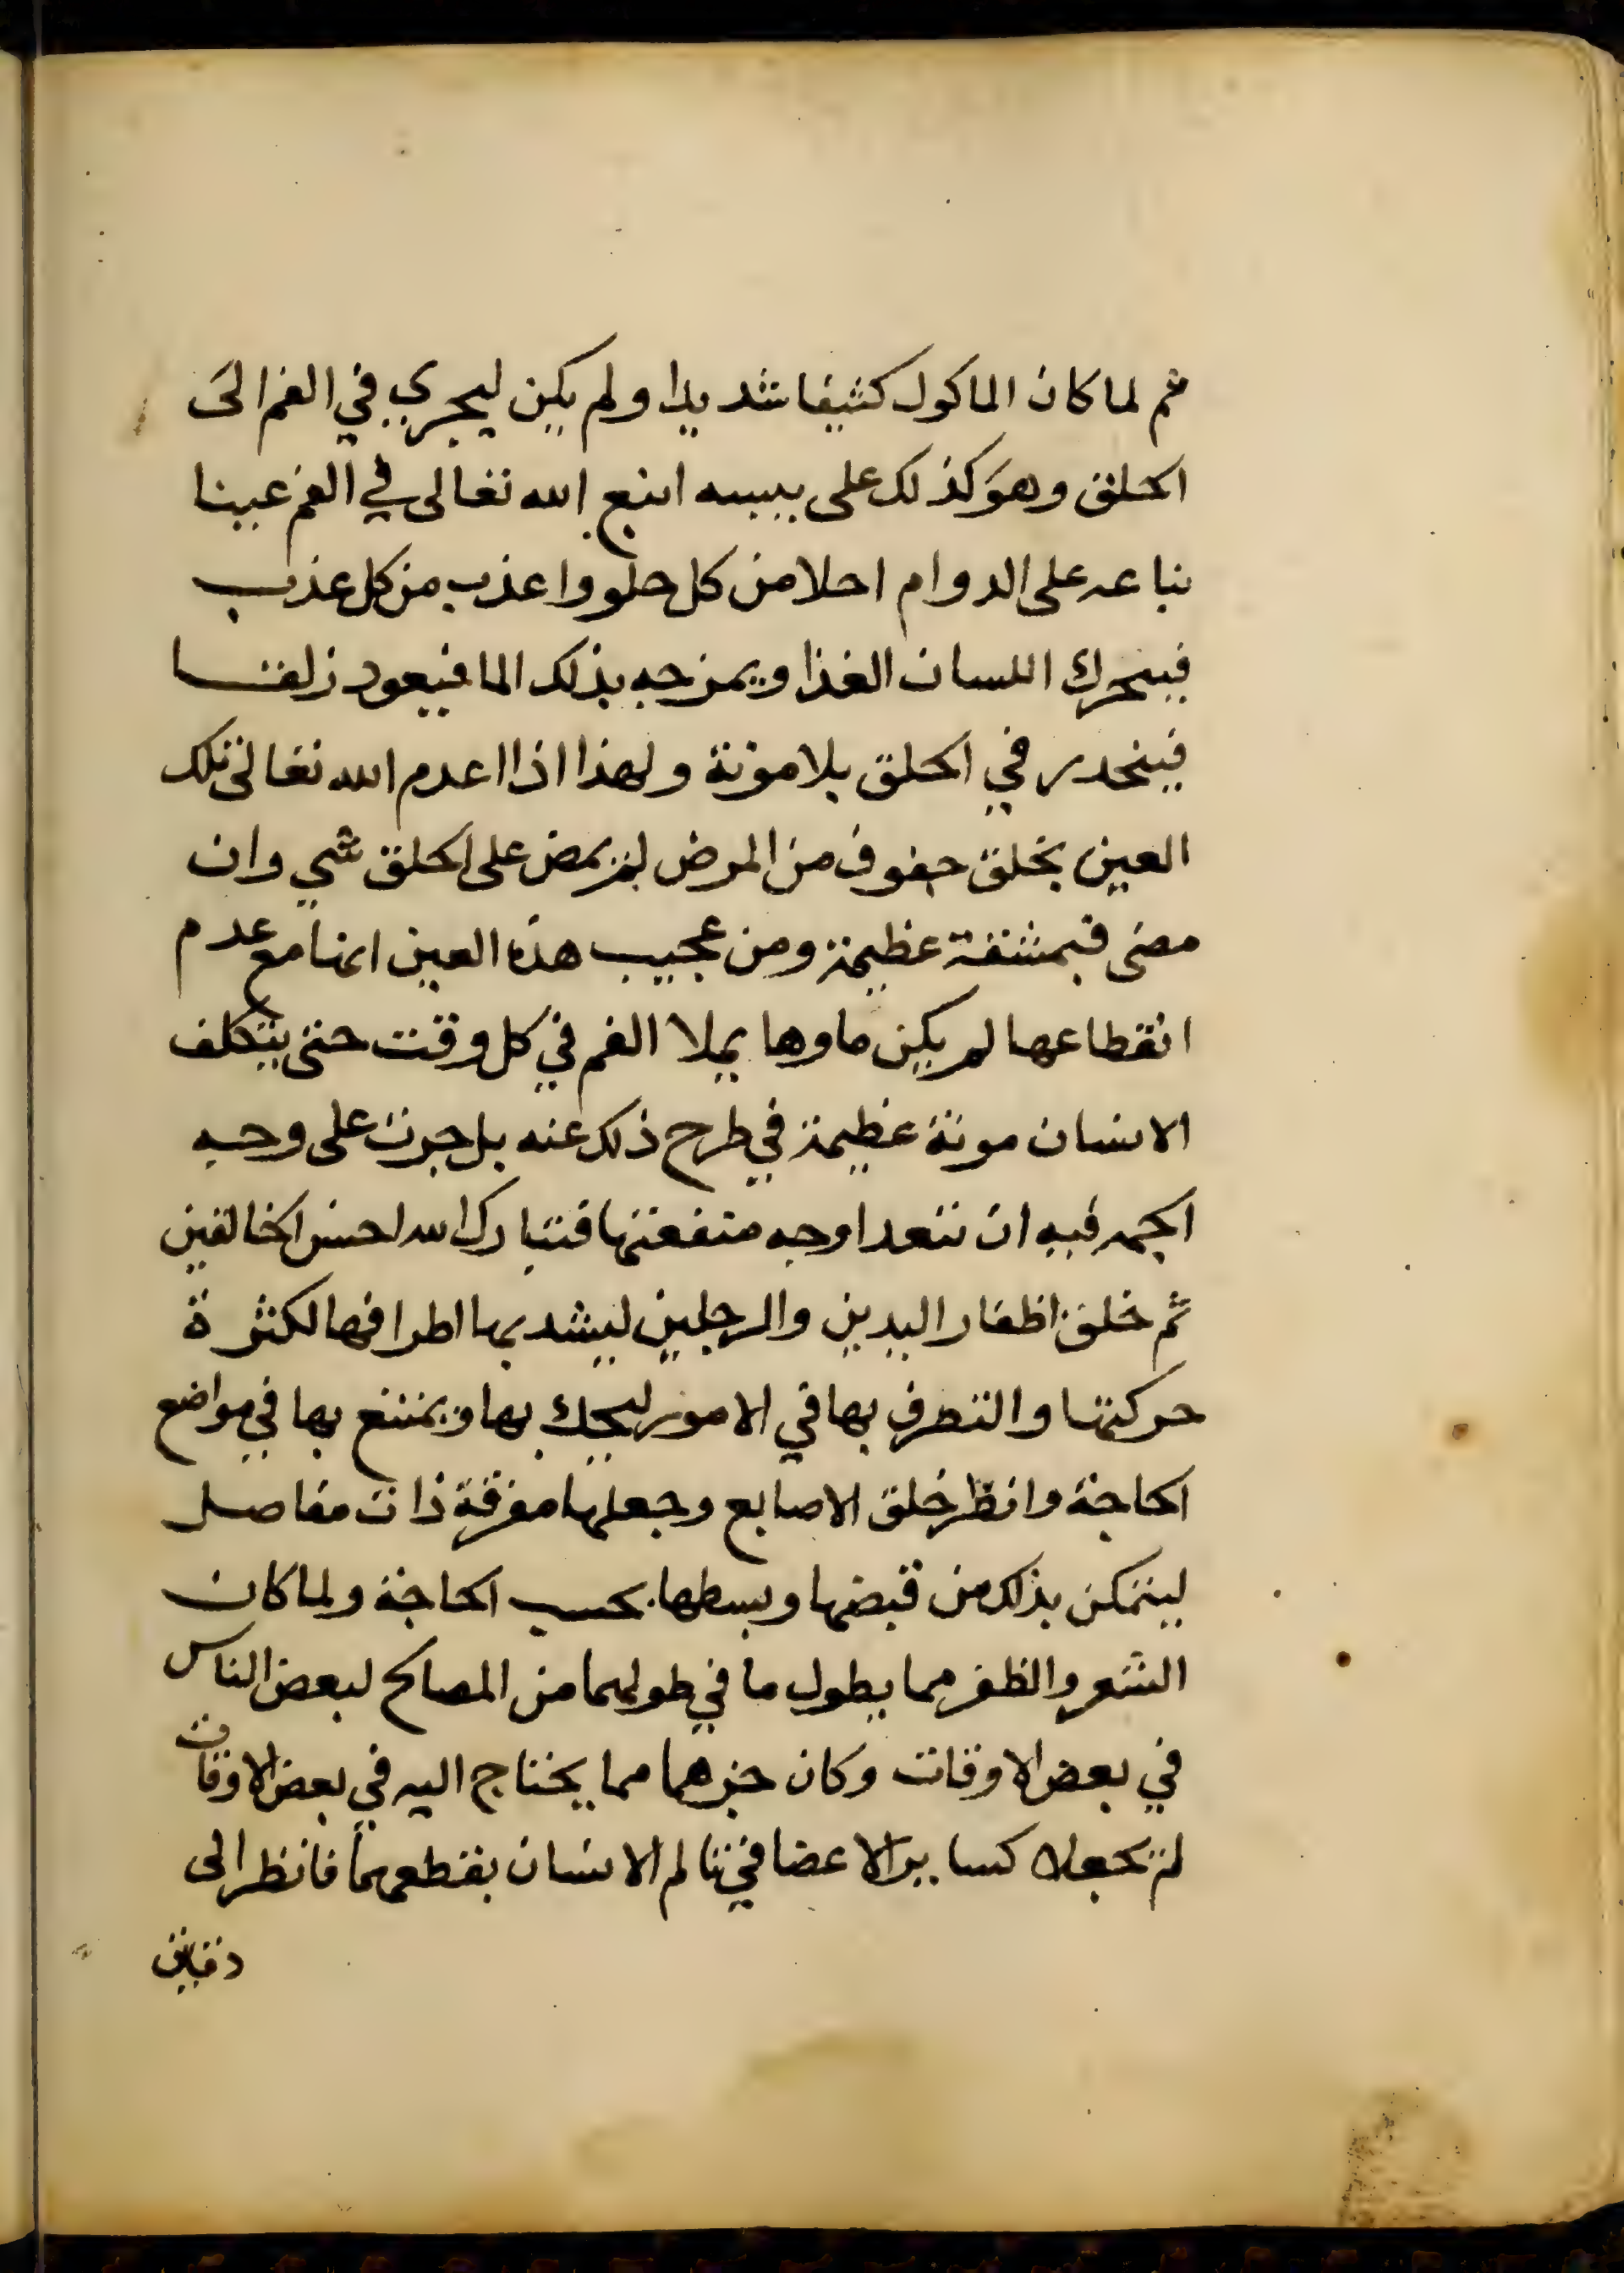 ثم لما كان الماكول كثيفا شديدا ولم يكن ليجري في الفم الى
الحلق وهو كذلك على يبسه انبع الله تعالى في الفم عينا
نباعه على الدوام احلا من كل حلو واعذب من كل عذب
فيحرك اللسان الغذا ويمزجه بذلك الما فيعود زلقا
فينحدر في الحلق بلا مؤنة ولهذا اذا اعدم الله تعالى تلك
العين بخلق جفوف من المرض لم يمض على الحلق شي وان
مضى فبمشقة عظيمة ومن عجيب هذه العين انها مع عدم
انقطاعها لم يكن ماوها يملا الفم في كل وقت حتى يتكلف
الانسان مونة عظيمة في طرح ذلك عنه بل جرت على وجه
الجم فيه ان تتعدا وجه منفعتها فتبارك الله احسن الخالقين
ثم خلق اظفار اليدين والرجلين ليشد بها اطرافها لكثرة
حركتها والتصرف بها في الامور ليحك بها ويمتنع بها في مواضع
الحاجة وانظر خلق الاصابع وجعلها مفرقة ذات مفاصل
ليتمكن بذلك من قبضها وبسطها بحسب الحاجة ولما كان
الشعر والظفر مما يطول ما في طولهما من المصالح لبعض الناس
في بعض الاوقات وكان جزهما مما يحتاج اليه في بعض الاوقات
لم تجعل كساير الاعضا في تالم الانسان بقطعهما فانظر الى
دقايق